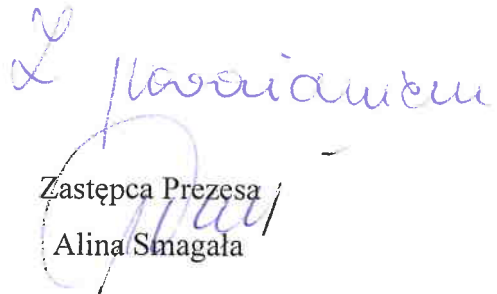 Z poważaniem
Zastępca Prezesa
Alina Smagała